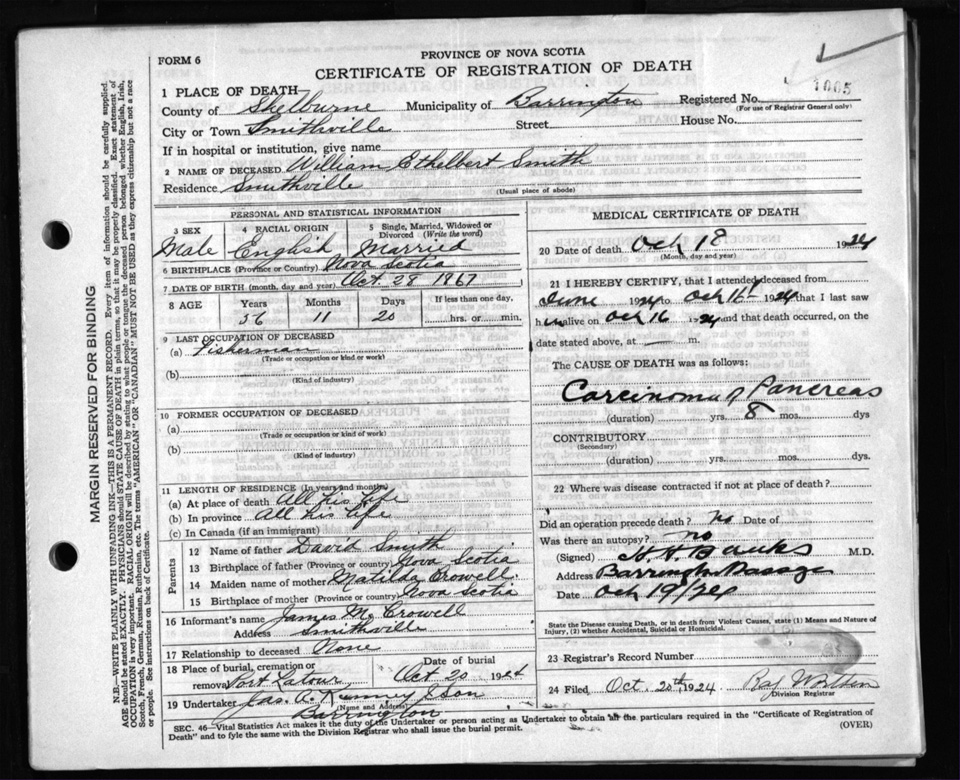 FORM 6
PROVINCE OF NOVA SCOTIA
CERTIFICATE OF REGISTRATION OF DEATH
1005
1 PLACE OF DEATH
County of Shelburne Municipality of Barrington Registered No.
(For use of Registrar General only)
City or Town Smithville Street House No.
If in hospital or institution, give name
2 NAME OF DECEASED William Ethelbert Smith
Residence Smithville
(Usual place of abode)
PERSONAL AND STATISTICAL INFORMATION
3 SEX 4 RACIAL ORIGIN 5 Single, Married, Widowed or Divorced (Write the word)
Male English Married
6 BIRTHPLACE (Province or Country) Nova Scotia
7 DATE OF BIRTH (month, day and year) Oct 28 1867
8 AGE Years Months Days If less than one day,
56 11 20 hrs. or min.
9 LAST OCCUPATION OF DECEASED
(a) Fisherman
(Trade or occupation or kind or work)
(b)
(Kind of industry)
10 FORMER OCCUPATION OF DECEASED
(a)
(Trade or occupation or kind of work)
(b)
(Kind of industry)
11 LENGTH OF RESIDENCE (In years and months)
(a) At place of death All his life
(b) In province All his life
(c) In Canada (if an immigrant)
Parents
12 Name of father David Smith
13 Birthplace of father (Province or country) Nova Scotia
14 Maiden name of mother Matilda Crowell
15 Birthplace of mother (Province or country) Nova Scotia
16 Informant's name James M. Crowell
Address Smithville
17 Relationship to deceased None
18 Place of burial, cremation or removal Port Latour Date of burial Oct 20 1924
19 Undertaker Jas. A. Kenney & Son
(Name and Address)
Barrington
MEDICAL CERTIFICATE OF DEATH
20 Date of death Oct 18 1924
(Month, day and year)
21 I HEREBY CERTIFY, that I attended deceased from
June 1924 to Oct 16th 1924 that I last saw
him alive on Oct 16 1924 and that death occurred, on the
date stated above, at — m.
The CAUSE OF DEATH was as follows:
Carcinoma of Pancreas
(duration) yrs. 8 mos. dys
CONTRIBUTORY
(Secondary)
(duration) yrs. mos. dys.
22 Where was disease contracted if not at place of death?
Did an operation precede death? no Date of
Was there an autopsy? no
(Signed) M.D.
Address Barrington Passage
Date Oct 19/24
State the Disease causing Death, or in death from Violent Causes, state (1) Means and Nature of
Injury, (2) whether Accidental, Suicidal or Homicidal.
23 Registrar's Record Number
24 Filed Oct. 20th 1924
Division Registrar
SEC. 46—Vital Statistics Act makes it the duty of the Undertaker or person acting as Undertaker to obtain all the particulars required in the "Certificate of Registration of
Death" and to fyle the same with the Division Registrar who shall issue the burial permit. (OVER)
MARGIN RESERVED FOR BINDING
N.B.—WRITE PLAINLY WITH UNFADING INK—THIS IS A PERMANENT RECORD. Every item of information should be carefully supplied
AGE should be stated EXACTLY. PHYSICIANS should STATE CAUSE OF DEATH in plain terms, so that it may be properly classified. Exact statement of
OCCUPATION is very important. RACIAL ORIGIN will be described by stating to what people or tongue the deceased person belonged whether English, Irish,
Scotch, French, German, Russian, Ruthenian, etc. The terms "AMERICAN" or "CANADIAN" MUST NOT BE USED as they express citizenship but not a race
or people. See instructions on back of Certificate.